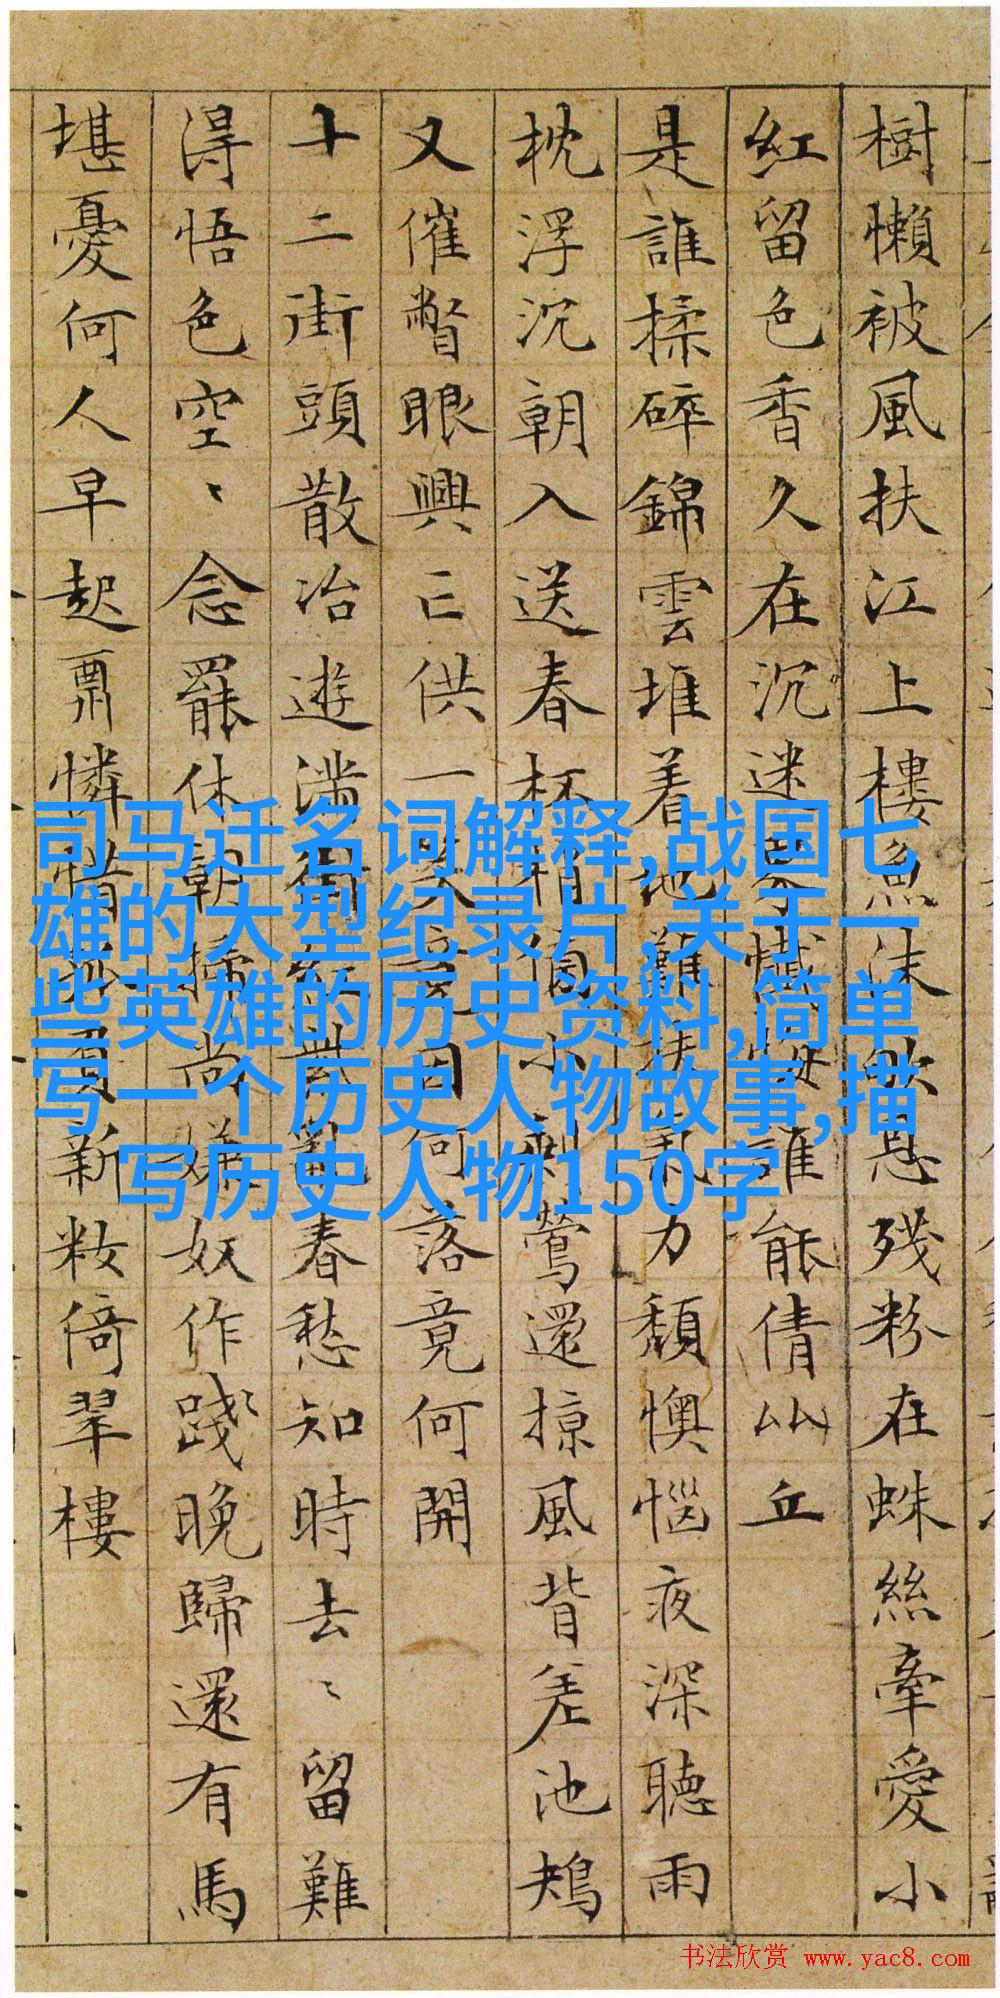 樹懶被風扶江上樓魚沫吹恩殘粉在蛛絲牽愛小
紅留色香久在沉迷懺悔誰能倩比丘
是誰揉碎錦雲堆着地難扶氣力頹懊惱夜深聽雨
枕浮沉朝入送春杯梢小剩鶯還掠風背差池
又催瞥眼興亡供一笑因何落竟何開
十二街頭散冶遊滿街紅紫亂春愁知時去〻留難
得悟色空〻念罷休朝掃尚嫌奴作踐晚歸還有馬
堪憂何人早起憐惜負新妝倚翠樓
司马迁名词解释,战国七
雄的大型纪录片,关于一
些英雄的历史资料,简单
写一个历史人物故事,描
写历史人物150字
书法欣赏 www.yac8.com